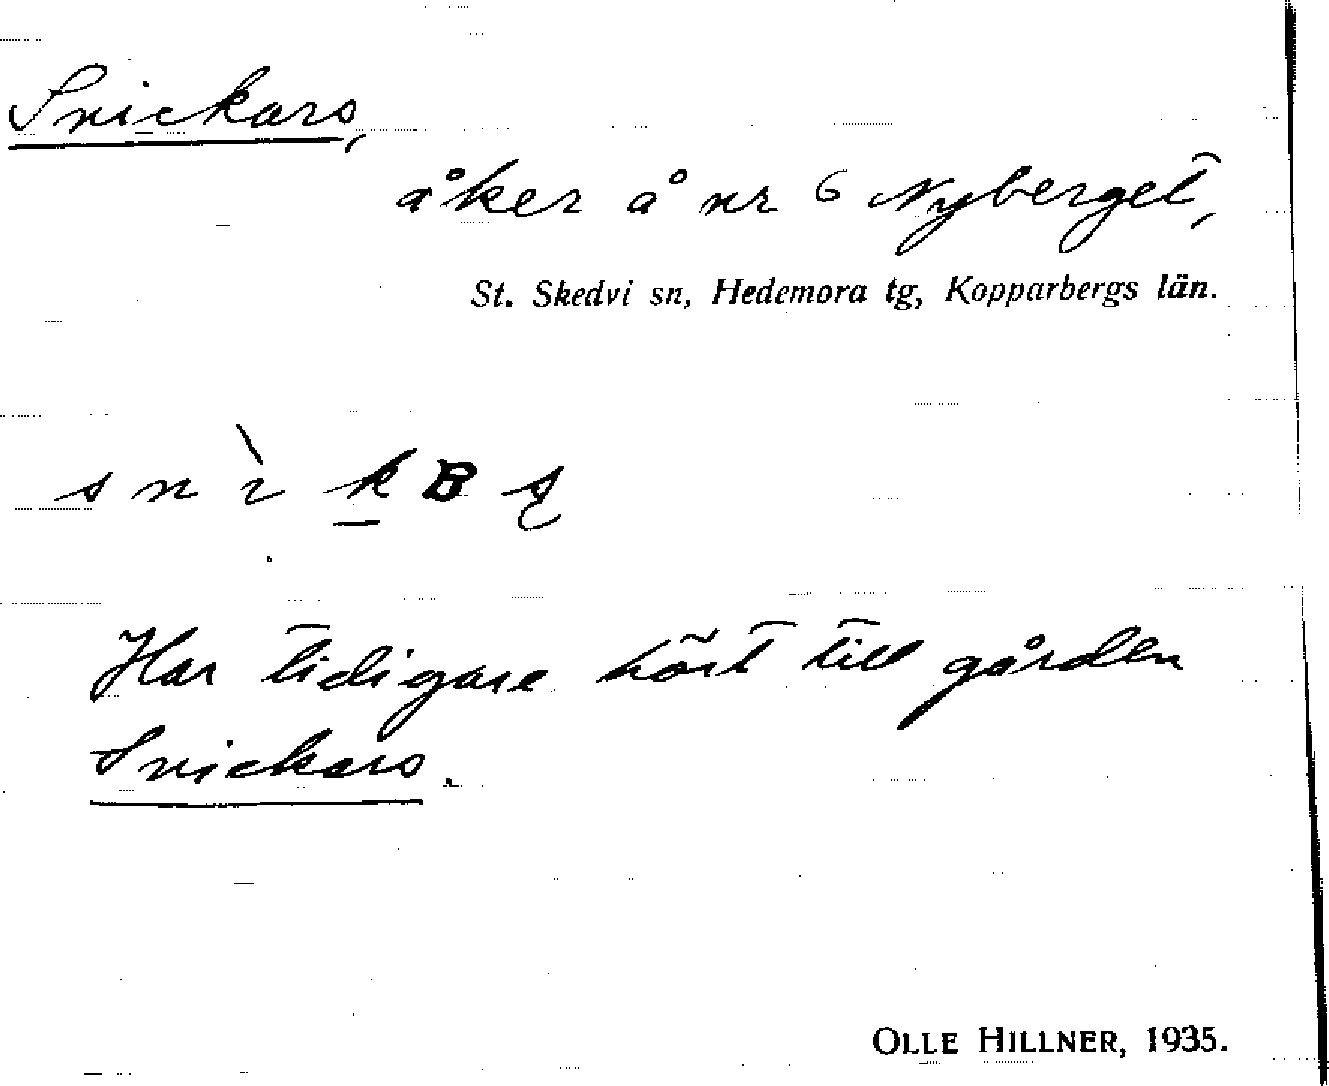 Snickars,
åker å nr 6 Nyberget,
St. Skedvi sn, Hedemora tg, Kopparbergs län.
Har tidigare hört till gården
Snickars.
OLLE HILLNER, 1935.